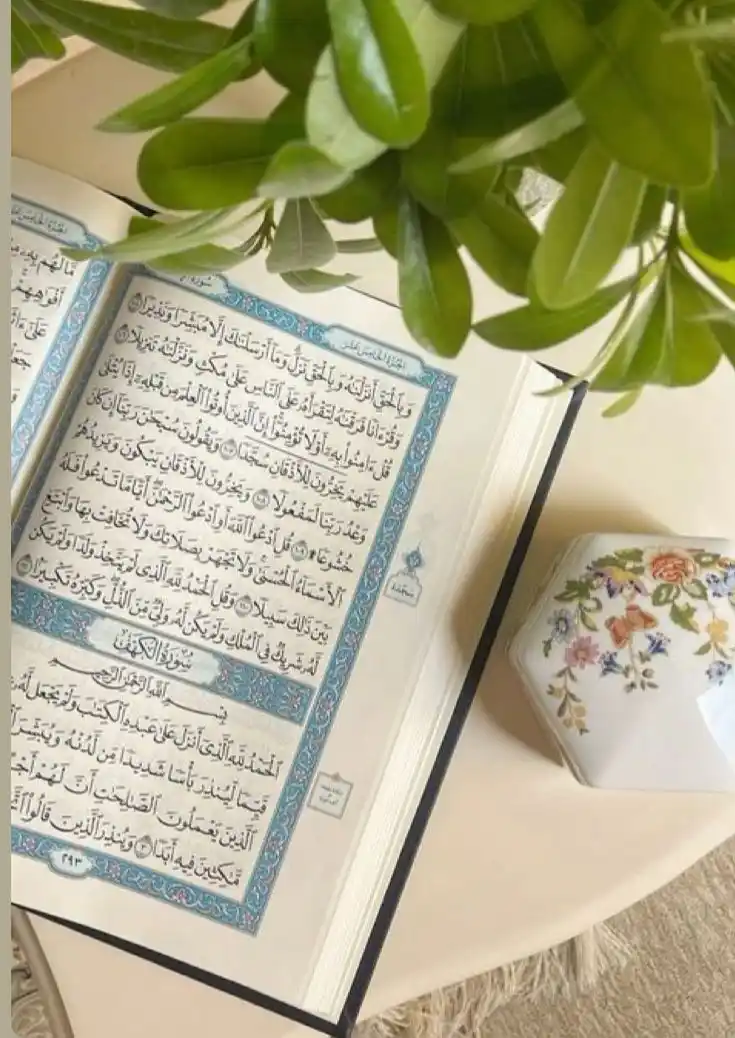 الجزء الخامس عشر
سورة
الجزء الخامس عشر
وَبِٱلْحَقِّ أَنزَلْنَٰهُ وَبِٱلْحَقِّ نَزَلَۗ وَمَآ أَرْسَلْنَٰكَ إِلَّا مُبَشِّرًا وَنَذِيرًا ١٠٥
وَقُرْءَانًا فَرَقْنَٰهُ لِتَقْرَأَهُۥ عَلَى ٱلنَّاسِ عَلَىٰ مُكْثٍ وَنَزَّلْنَٰهُ تَنزِيلًا ١٠٦
قُلْ ءَامِنُوا۟ بِهِۦٓ أَوْ لَا تُؤْمِنُوٓا۟ۚ إِنَّ ٱلَّذِينَ أُوتُوا۟ ٱلْعِلْمَ مِن قَبْلِهِۦٓ إِذَا يُتْلَىٰ
عَلَيْهِمْ يَخِرُّونَ لِلْأَذْقَانِ سُجَّدًا ١٠٧ وَيَقُولُونَ سُبْحَٰنَ رَبِّنَآ إِن كَانَ
وَعْدُ رَبِّنَا لَمَفْعُولًا ١٠٨ وَيَخِرُّونَ لِلْأَذْقَانِ يَبْكُونَ وَيَزِيدُهُمْ
خُشُوعًا ۩ ١٠٩ قُلِ ٱدْعُوا۟ ٱللَّهَ أَوِ ٱدْعُوا۟ ٱلرَّحْمَٰنَۖ أَيًّا مَّا تَدْعُوا۟ فَلَهُ
ٱلْأَسْمَآءُ ٱلْحُسْنَىٰۚ وَلَا تَجْهَرْ بِصَلَاتِكَ وَلَا تُخَافِتْ بِهَا وَٱبْتَغِ
بَيْنَ ذَٰلِكَ سَبِيلًا ١١٠ وَقُلِ ٱلْحَمْدُ لِلَّهِ ٱلَّذِى لَمْ يَتَّخِذْ وَلَدًا وَلَمْ يَكُن
لَّهُۥ شَرِيكٌ فِى ٱلْمُلْكِ وَلَمْ يَكُن لَّهُۥ وَلِىٌّ مِّنَ ٱلذُّلِّۖ وَكَبِّرْهُ تَكْبِيرًۢا ١١١
سُورَةُ الكَهْفِ
بِسْمِ ٱللَّهِ ٱلرَّحْمَٰنِ ٱلرَّحِيمِ
ٱلْحَمْدُ لِلَّهِ ٱلَّذِىٓ أَنزَلَ عَلَىٰ عَبْدِهِ ٱلْكِتَٰبَ وَلَمْ يَجْعَل لَّهُۥ
قَيِّمًا لِّيُنذِرَ بَأْسًا شَدِيدًا مِّن لَّدُنْهُ وَيُبَشِّرَ
ٱلَّذِينَ يَعْمَلُونَ ٱلصَّٰلِحَٰتِ أَنَّ لَهُمْ
مَّٰكِثِينَ فِيهِ أَبَدًا ٣ وَيُنذِرَ ٱلَّذِينَ قَالُوا۟
٢٩٣
سجدة
مَّا لَهُم بِهِۦ
أَفْوَٰهِهِمْ
عَلَىٰٓ